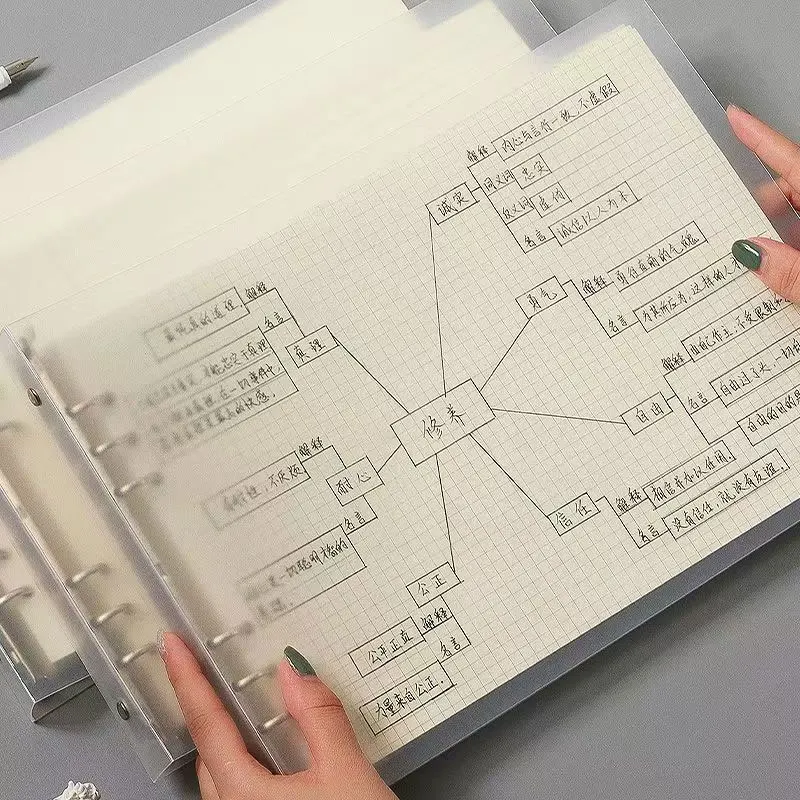 修养
诚实
解释
内心与言行一致，不虚假
同义词
忠实
反义词
虚伪
名言
诚信以人为本
勇气
解释
勇往直前的气魄
名言
为其所应为，这样的人才
自由
解释
由自己作主，不受限制和
名言
自由过了头，一切
自由的目的是
信任
解释
相信并加以任用。
名言
没有信任，就没有友谊。
公正
解释
公平正直
名言
力量来自公正。
耐心
解释
不厌烦
名言
一切聪明才智的
真理
解释
真的道理
名言
才能忠实于真理
在一切事件中，
的快感。